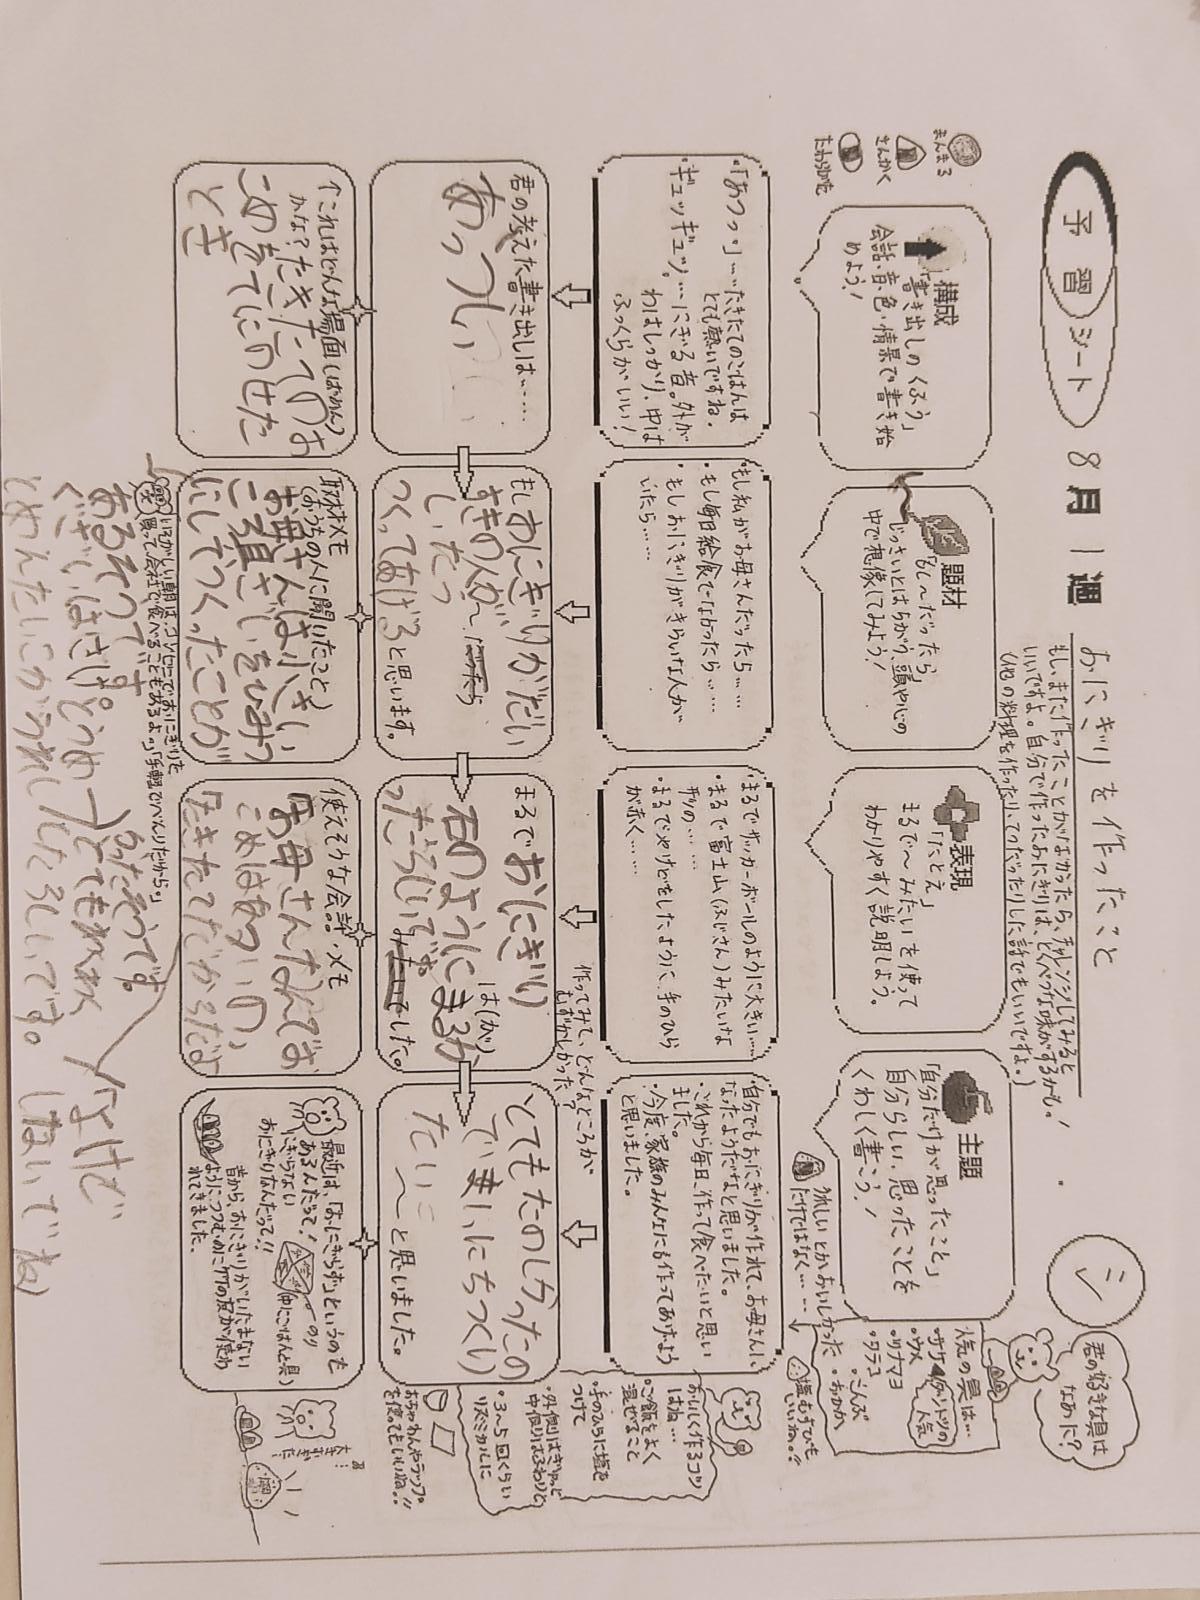 予習シート
8月1週
おにぎりを作ったこと
もし、また作ったことがなかったら、チャレンジしてみると
いいですよ。自分で作ったおにぎりは、とくべつな味がするかも。
(他の料理を作ったり、てつだったりした話でもいいですよ。)
シ
君の好きな具は
なあに?
まんまる
さんかく
たわら
構成
「書き出しのくふう」
会話・音・色・情景で書き始
めよう!
題材
「もし〜だったら」
じっさいとはちがう、頭や心の
中で想像してみよう!
表現
「たとえ」
まるで〜みたいを使って
わかりやすく説明しよう。
主題
「自分だけが思ったこと」
自分らしい、思ったことを
くわしく書こう!
人気の具は…
・サケ
・ウメ
・ツナマヨ
・タラコ
・こんぶ
・おかか
塩むすびも
いいね。!!
楽しいとかおいしかった
だけではなく……
・「あつっ」…たきたてのごはんは
とても熱いですね。
・ギュッギュッ。…にぎる音。外が
わはしっかり、中は
ふっくらがいい!
・もし私がお母さんだったら……
・もし毎日給食でなかったら……
・もしおにぎりがきらいな人が
いたら……
・まるでサッカーボールのように大きい……
・まるで富士山(ふじさん)みたいな
形の……
・まるでやけどをしたように、手のひら
が赤く……
・自分でもおにぎりが作れて、お母さんに
なったようだなと思いました。
・これから毎日、作って食べたいと思い
ました。
・今度、家族のみんなにも作ってあげよう
と思いました。
おいしく作るコツ
はね…
・ご飯をよく
混ぜること
・手のひらに塩を
つけて
・外側はぎゅっと
中側はふわりと
・3〜5回くらい
リズミカルに
おちゃわんやラップ。
を使ってもいいね。!!
作ってみて、どんなところが
むずかしかった?
君の考えた書き出しは……
あっつい
もしおにぎりがだい
すきの人が〜
いたら
つくってあげると思います。
まるでおにぎり
は(が)
石のようにまるか
ったらしいです。
した。
とてもたのしかったの
でまいにちつくり
たい
〜と思いました。
↑これはどんな場面(ばめん)
かな?
たきたてのお
こめをてにのせた
とき
取材メモ
(おうちの人に聞いたこと)
お母さんは小さい
ころ具ざいをひみつ
にしてつくったことが
あるそうです
ぐざいはさけとうめ
とめんたいこがうれしいたらしいです。
使えそうな会話・メモ
お母さんなんでお
こめはあついの、
たきたてだからだよ
最近は、「おにぎらず」というのも
あるんだって!
にぎらない
おにぎりなんだって!!
のり
(中にごはんと具)
昔から、おにぎりがいたまない
ように、つつむのに竹の皮が使わ
れてきました。
いそがしい朝は、コンビニでおにぎりを
買って会社で食べることもあるよ。」「手軽でべんりだから。」